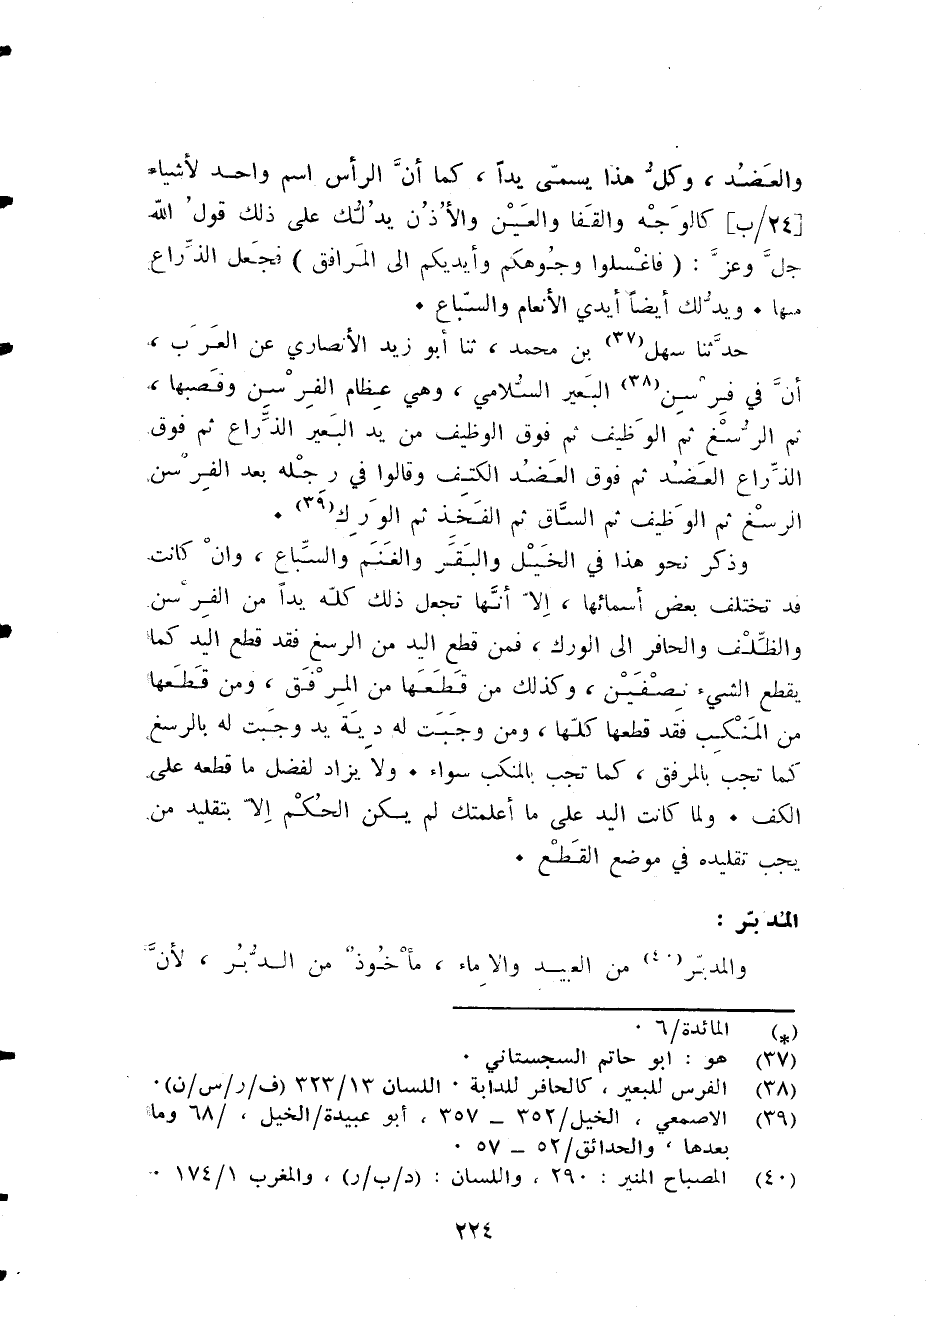 والعَضُد ، وكلُّ هذا يسمّى يداً ، كما أنَّ الرأس اسم واحد لأشياء
[٢٤/ب] كالوَجْه والقَفا والعَيْن والأُذُن يدلُّك على ذلك قولُ الله
جلَّ وعزَّ : ( فاغْسلوا وجُوهكم وأيديكم الى المَرافق ) فجَعل الذِّراع
منها ٠ ويدُلك أيضاً أيدي الأنعام والسّباع ٠
حدَّثنا سهل(٣٧) بن محمد ، ثنا أبو زيد الأنصاري عن العَرَب ،
أنَّ في فِرْسِن(٣٨) البَعير السُّلامي ، وهي عِظام الفِرْسِن وقَصبها ،
ثم الرُسْغ ثم الوَظيف ثم فوق الوظيف من يد البَعير الذِّراع ثم فوق
الذِّراع العَضُد ثم فوق العَضُد الكتِف وقالوا في رجْله بعد الفِرْسن
الرسْغ ثم الوَظيف ثم السَّاق ثم الفَخِذ ثم الوَرِك(٣٩) ٠
وذكر نحو هذا في الخَيْل والبَقَر والغَنَم والسِّباع ، وانْ كانت
قد تختلف بعض أسمائها ، إلاّ أنَّها تجعل ذلك كلّه يداً من الفِرْسن
والظِّلْف والحافر الى الورك ، فمن قطع اليد من الرسغ فقد قطع اليد كما
يقطع الشيء نِصْفَيْن ، وكذلك من قَطَعَها من المِرْفَق ، ومن قَطَعها
من المَنْكِب فقد قطعها كلّها ، ومن وجَبَت له دِيَة يد وجَبت له بالرسغ
كما تجب بالمرفق ، كما تجب بالمنكب سواء ٠ ولا يزاد لفضل ما قطعه على
الكف ٠ ولما كانت اليد على ما أعلمتك لم يكن الحُكْم إلاّ بتقليد من
يجب تقليده في موضع القَطْع ٠
المُدبّر :
والمدبّر(٤٠) من العبيد والاِماء ، مأْخُوذٌ من الدُّبُر ، لأنَّ
(*) المائدة/٦ ٠
(٣٧) هو : ابو حاتم السجستاني ٠
(٣٨) الفرس للبعير ، كالحافر للدابة ٠ اللسان ٣٢٣/١٣ (ف/ر/س/ن)٠
(٣٩) الاصمعي ، الخيل/٣٥٢ ــ ٣٥٧ ، أبو عبيدة/الخيل ، /٦٨ وما
بعدها ، والحدائق/٥٢ ــ ٥٧ ٠
(٤٠) المصباح المنير : ٢٩٠ ، واللسان : (د/ب/ر) ، والمغرب ١٧٤/١ ٠
٢٢٤